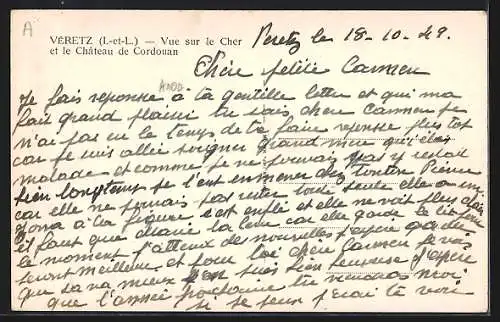 A
VÉRETZ (I.-et-L.) — Vue sur le Cher
et le Château de Cordouan
Veretz le 18-10-49.
Chère petite Carmen
Je fais reponse à ta gentille lettre et qui ma
fait grand plaisir tu sais chere Carmen je
n'ai pas eu le temps de te faire reponse plus tot
car je suis allée soigner grand mere qui étais
malade et comme je ne pouvais pas y resté
bien longtemps je l'est emmener chez tonton Pierre
car elle ne pouvais pas rester toute seule elle a un
zona à la figure c'est enflé et elle ne voit plus clair
il faut que la car elle garde le lit pour
le moment j'attend de nouvelles j'espère
seront meilleur et pour toi chère Carmen je vois
que sa va mieux suis bien heureuse j'espère
que l'année prochaine tu viendras moi
si je peux j'irai te voir